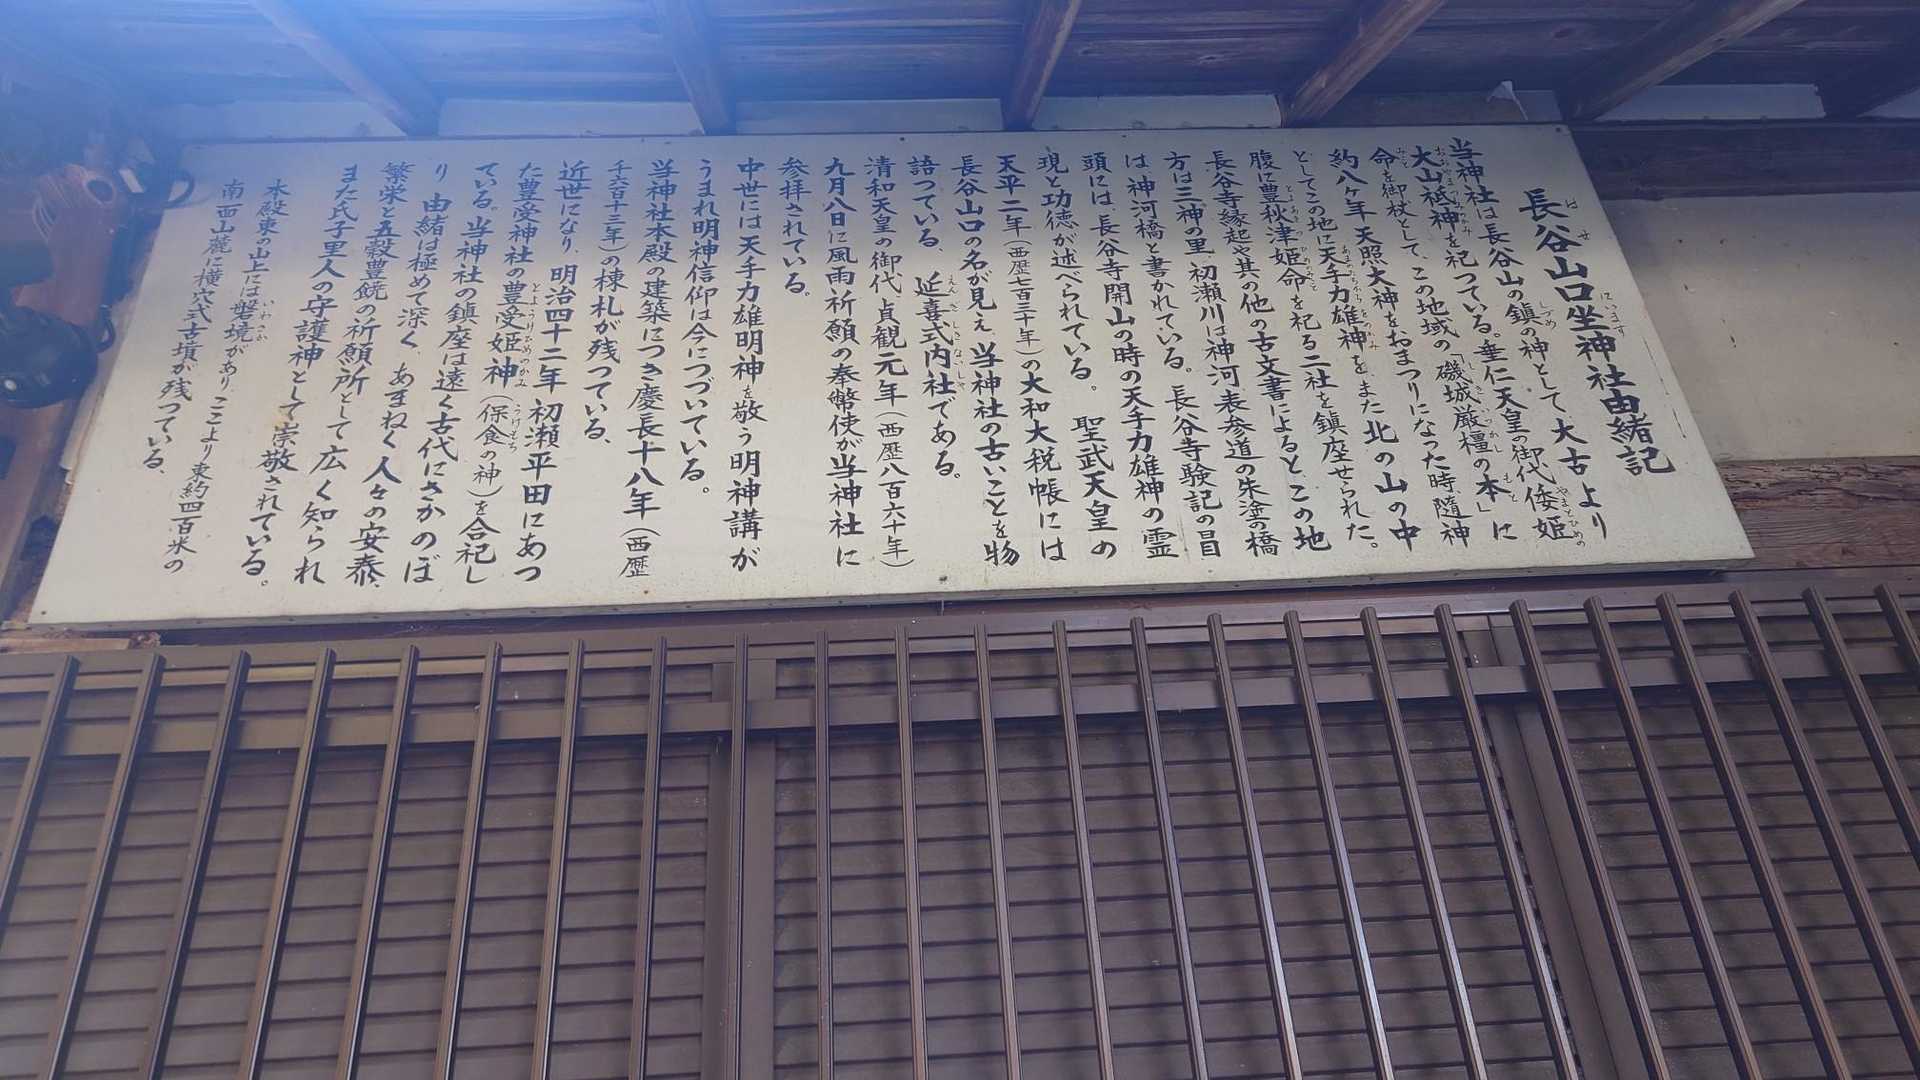 長谷山口坐神社由緒記
当神社は長谷山の鎮の神として、太古より
大山祇神を祀つている。垂仁天皇の御代倭姫
命を御杖として、この地域の「磯城厳橿の本」に
約八ヶ年天照大神をおまつりになった時、随神
としてこの地に天手力雄神を、また北の山の中
腹に豊秋津姫命を祀る二社を鎮座せられた。
長谷寺縁起や其の他の古文書によると、この地
方は三神の里、初瀬川は神河、表参道の朱塗の橋
は神河橋と書かれている。長谷寺験記の冒
頭には、長谷寺開山の時の天手力雄神の霊
現と功徳が述べられている。聖武天皇の
天平二年(西歴七百三十年)の大和大税帳には
長谷山口の名が見え、当神社の古いことを物
語つている、延喜式内社である。
清和天皇の御代、貞観元年(西歴八百六十年)
九月八日に風雨祈願の奉幣使が当神社に
参拝されている。
中世には天手力雄明神を敬う明神講が
うまれ明神信仰は今につづいている。
当神社本殿の建築につき慶長十八年(西歴
千六百十三年)の棟札が残つている、
近世になり、明治四十二年 初瀬平田にあつ
た豊受神社の豊受姫神(保食の神)を合祀し
ている。当神社の鎮座は遠く古代にさかのぼ
り 由緒は極めて深く、あまねく人々の安泰、
繁栄と五穀豊饒の祈願所として広く知られ
また氏子里人の守護神として崇敬されている。
本殿東の山上には磐境があり、ここより東約四百米の
南面山麓に横穴式古墳が残つている、